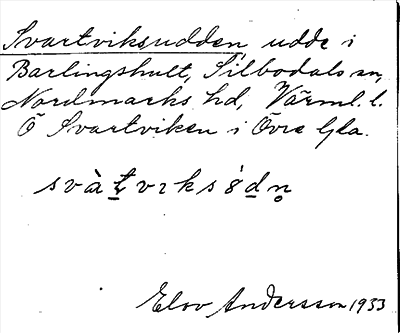 Svartviksudden udde i
Barlingshult, Silbodals sn,
Nordmarks hd, Värml. l.
Ö Svartviken i Övre Gla.
svàt̲vɪksȣ́d̲n̥
Elov Andersson 1933